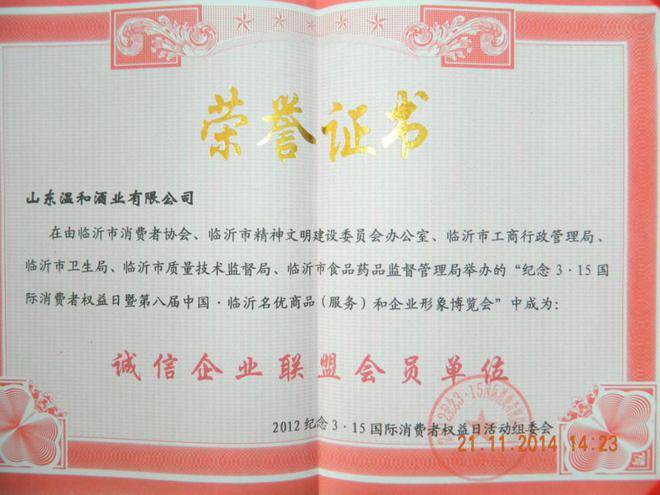 荣誉证书
山东温和酒业有限公司
在由临沂市消费者协会、临沂市精神文明建设委员会办公室、临沂市工商行政管理局、
临沂市卫生局、临沂市质量技术监督局、临沂市食品药品监督管理局举办的“纪念3·15国
际消费者权益日暨第八届中国·临沂名优商品(服务)和企业形象博览会”中成为:
诚信企业联盟会员单位
2012纪念3·15国际消费者权益日活动组委会
21.11.2014 14:23